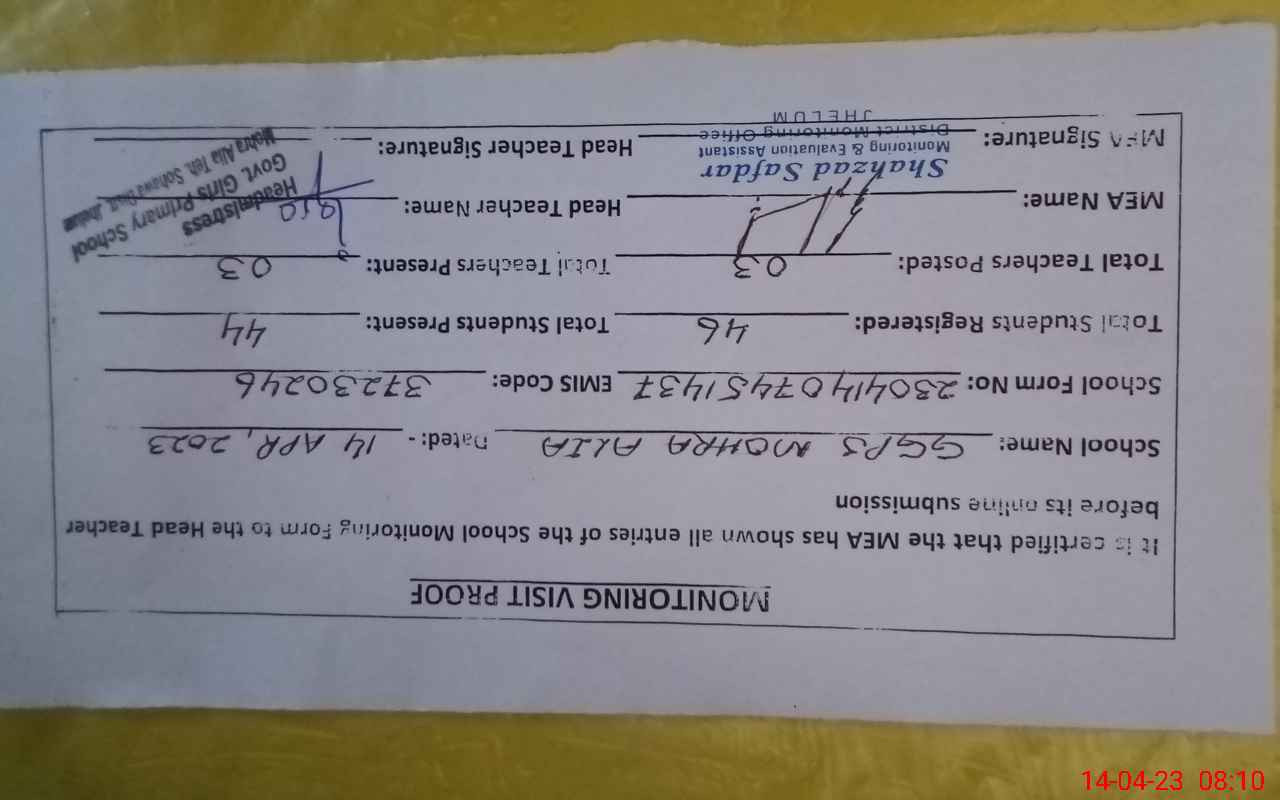 MONITORING VISIT PROOF
It is certified that the MEA has shown all entries of the School Monitoring Form to the Head Teacher
before its online submission
School Name: GGPS MOHRA ALIA Dated: - 14 APR, 2023
School Form No: 23041407451437 EMIS Code: 37230246
Total Students Registered: 46 Total Students Present: 44
Total Teachers Posted: 03 Total Teachers Present: 03
MEA Name: Head Teacher Name:
MEA Signature: Head Teacher Signature:
Shahzad Safdar
Monitoring & Evaluation Assistant
District Monitoring Office
JHELUM
Headmistress
Govt. Girls Primary School
Mohra Alia Teh. Sohawa Distt. Jhelum
14-04-23 08:10